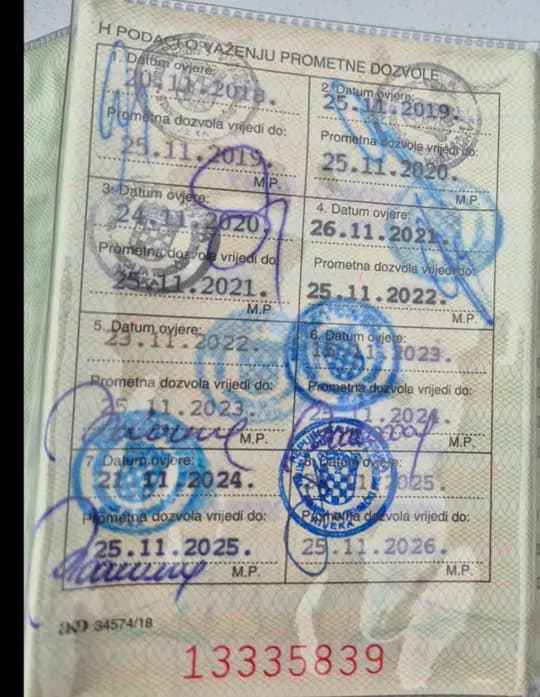 H PODACI O VAŽENJU PROMETNE DOZVOLE
1. Datum ovjere:
20.11.2018.
Prometna dozvola vrijedi do:
25.11.2019.
M.P.
2. Datum ovjere:
25.11.2019.
Prometna dozvola vrijedi do:
25.11.2020.
M.P.
3. Datum ovjere:
24.11.2020.
Prometna dozvola vrijedi do:
25.11.2021.
M.P.
4. Datum ovjere:
26.11.2021.
Prometna dozvola vrijedi do:
25.11.2022.
M.P.
5. Datum ovjere:
23.11.2022.
Prometna dozvola vrijedi do:
25.11.2023.
M.P.
6. Datum ovjere:
.11.2023.
Prometna dozvola vrijedi do:
25.11.2024.
M.P.
7. Datum ovjere:
21.11.2024.
Prometna dozvola vrijedi do:
25.11.2025.
M.P.
8. Datum ovjere:
2025.
Prometna dozvola vrijedi do:
25.11.2026.
M.P.
AKD 34574/18
13335839